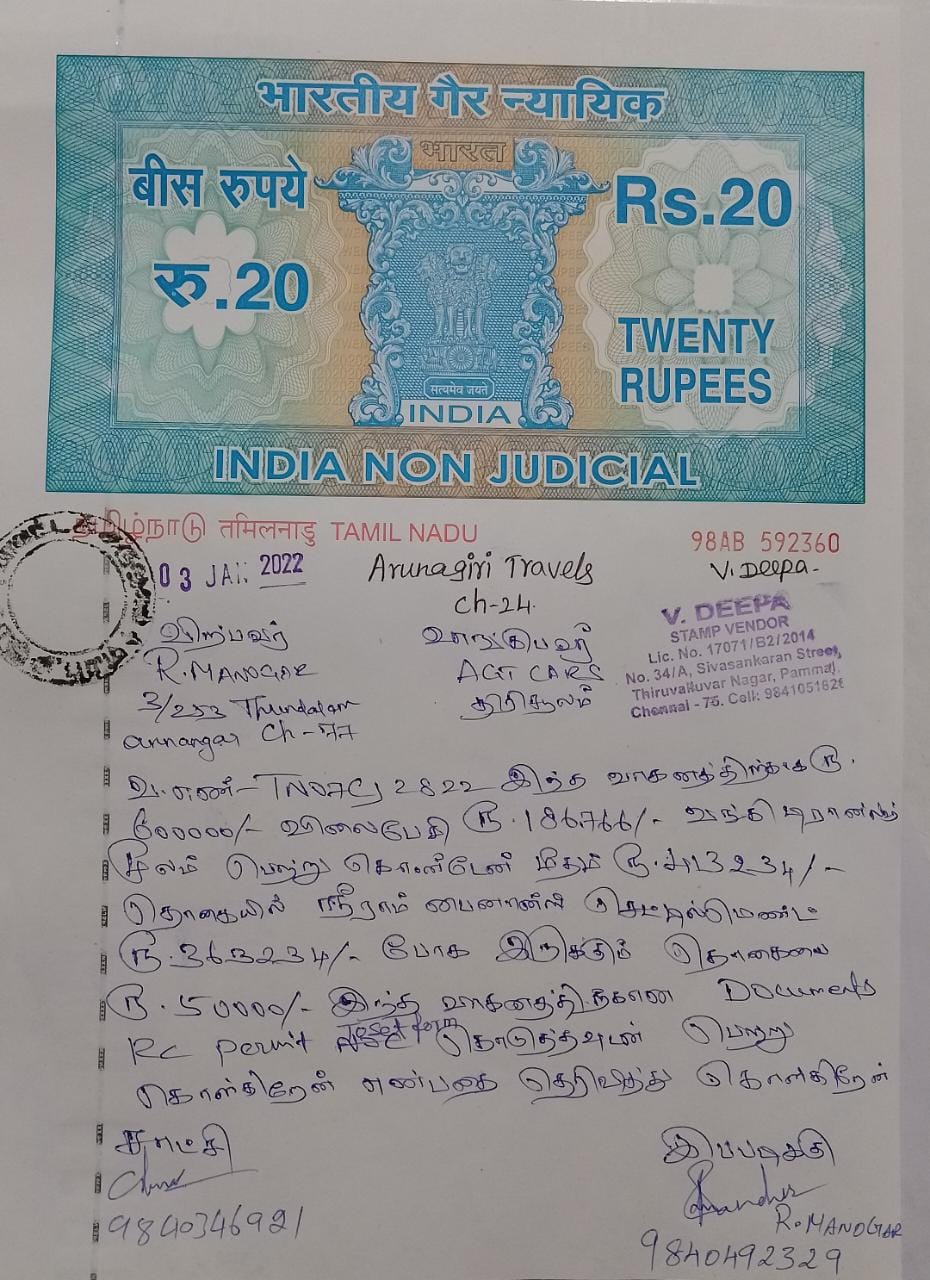 भारतीय गैर न्यायिक
भारत
बीस रुपये
रु.20
Rs.20
TWENTY
RUPEES
सत्यमेव जयते
INDIA
INDIA NON JUDICIAL
தமிழ்நாடு तमिलनाडु TAMIL NADU
98AB 592360
03 JAN 2022
Arunagiri Travels
Ch-24.
V. Deepa-
V. DEEPA
STAMP VENDOR
Lic. No. 17071/B2/2014
No. 34/A, Sivasankaran Street,
Thiruvalluvar Nagar, Pammal,
Chennai - 75. Cell:
விற்பவர்
R. MANOGAR
3/253 Thundalam
annanagar Ch-77
வாங்குபவர்
AGT CARS
திரிசூலம்
வ.எண் - 2822 இந்த வாகனத்திற்காக ரூ.
600000/- விலைபேசி ரூ.186766/- வங்கி டிரான்ஸ்பர்
மூலம் பெற்று கொண்டேன் மீதம் ரூ.413234/-
தொகையில் ஸ்ரீராம் பைனான்ஸ் செட்டில்மெண்ட்
ரூ.363234/- போக இருக்கும் தொகையை
ரூ.50000/- இந்த வாகனத்திற்கான Documents
RC permit கொடுத்தவுடன் பெற்று
கொள்கிறேன் என்பதை தெரிவித்து கொள்கிறேன்
சாட்சி
9840346921
இப்படிக்கு
R. MANOGAR
9840492329